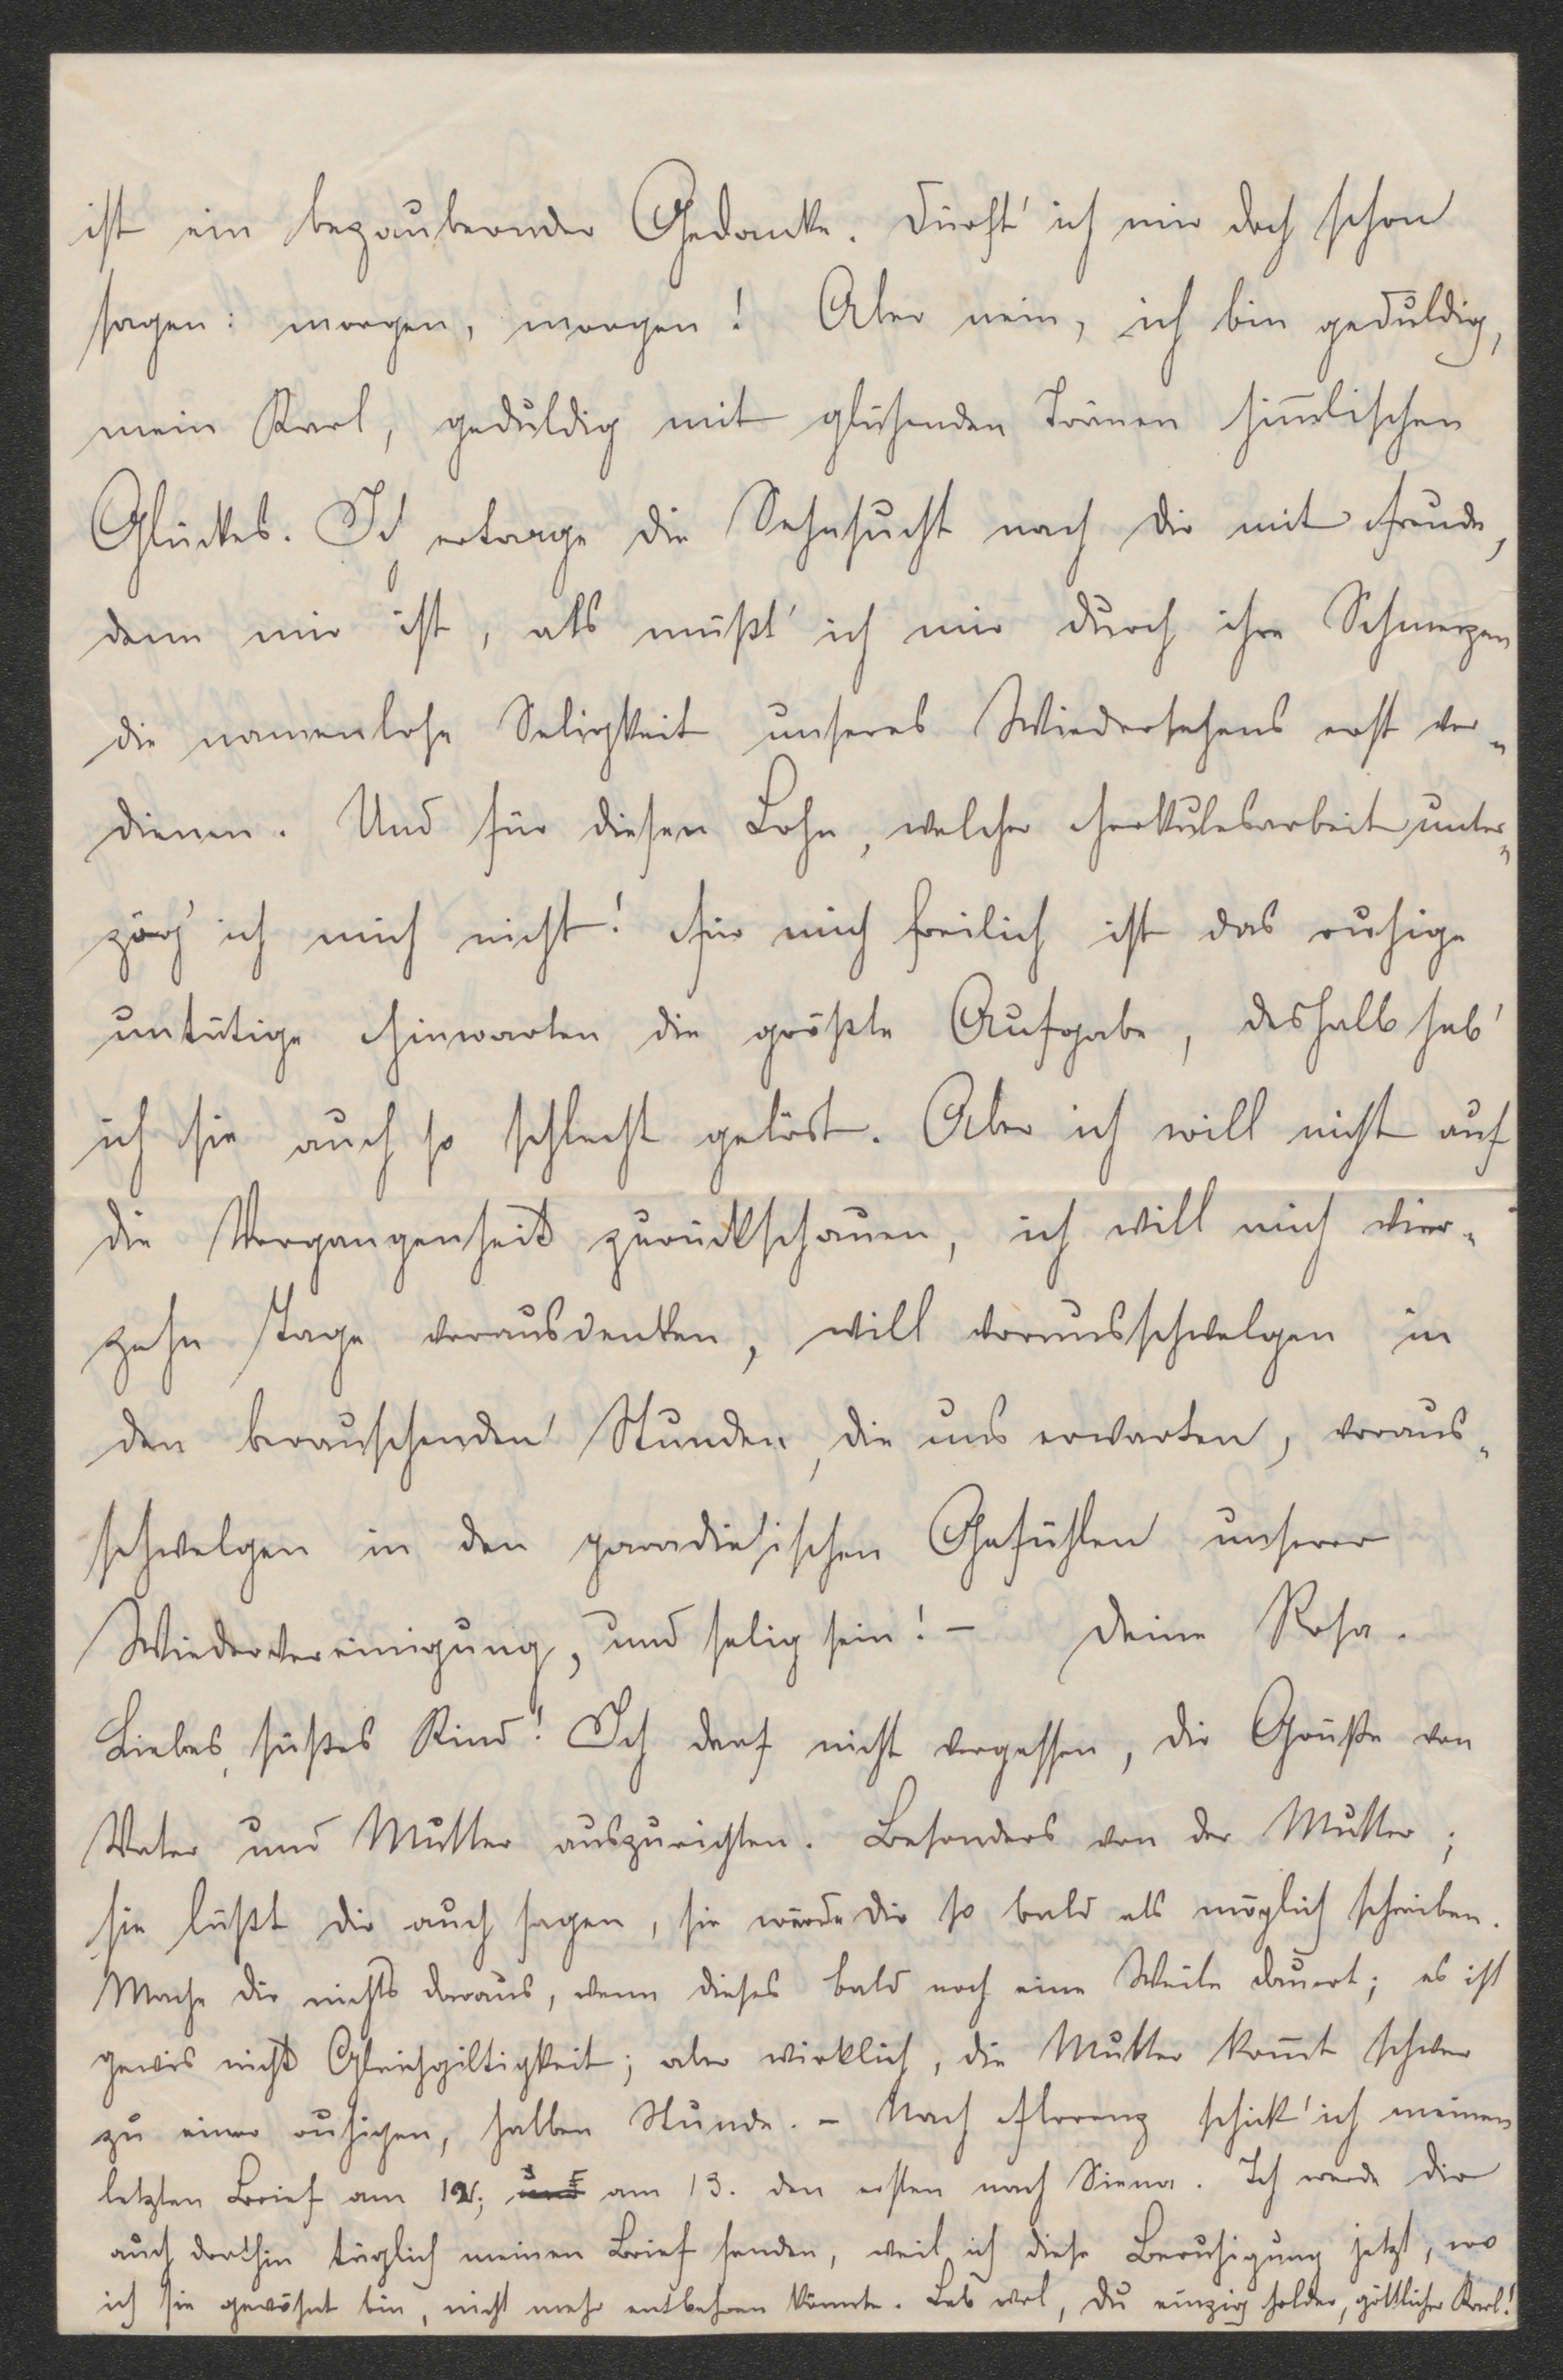 ist ein bezaubernder Gedanke. Dürft' ich mir doch schon
sagen: morgen, morgen! Aber nein, ich bin geduldig,
mein Karl, geduldig mit glühenden Tränen him̄lischen
Glückes. Ich ertrage die Sehnsucht nach dir mit Freude,
denn mir ist, als müßt' ich mir durch ihre Schmerzen
die namenlose Seligkeit unseres Wiedersehens erst ver„
dienen. Und für diesen Lohn, welcher Herkulesarbeit unter„
zög' ich mich nicht! Für mich freilich ist das ruhige
untätige Hinwarten die größte Aufgabe, deshalb hab'
ich sie auch so schlecht gelöst. Aber ich will nicht auf
die Vergangenheit zurückschauen, ich will mich vier„
zehn Tage vorausdenken, will vorausschwelgen in
den berauschenden Stunden, die uns erwarten, voraus„
schwelgen in den paradiesischen Gefühlen unserer
Wiedervereinigung, und selig sein! – Deine Rosa.
Liebes, süßes Kind! Ich darf nicht vergessen, dir Grüße von
Vater und Mutter auszurichten. Besonders von der Mutter;
sie läßt dir auch sagen, sie würde dir so bald als möglich schreiben.
Mache dir nichts daraus, wenn dieses bald noch eine Weile dauert; es ist
gewis nicht Gleichgiltigkeit; aber wirklich, die Mutter kom̄t schwer
zu einer ruhigen, halben Stunde. – Nach Florenz schick' ich meinen
letzten Brief am 12; und am 13. den ersten nach Siena. Ich werde dir
auch dorthin täglich meinen Brief senden, weil ich diese Beruhigung jetzt, wo
ich sie gewöhnt bin, nicht mehr entbehren könnte. Leb wol, du einzig holder, göttlicher Karl!